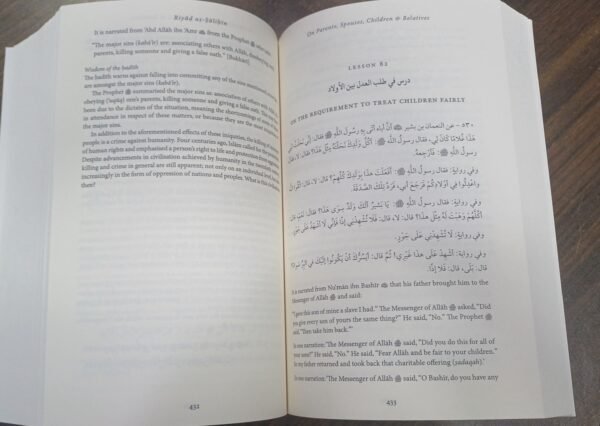 Riyāḍ aṣ-Ṣāliḥīn
It is narrated from 'Abd Allāh ibn 'Amr ﷺ from the Prophet ﷺ
"The major sins (kabā'ir) are: associating others with Allāh, disobeying
parents, killing someone and giving a false oath." [Bukhārī]
Wisdom of the hadith
The hadith warns against falling into committing any of the sins mentioned
are amongst the major sins (kabā'ir).
The Prophet ﷺ summarised the major sins as: association of others with
obeying ('uqūq) one's parents, killing someone and giving a false oath.
been due to the dictates of the situation, meaning the shortcomings of those
in attendance in respect of these matters, or because they are the most
the major sins.
In addition to the aforementioned effects of these iniquities, the killing of
people is a crime against humanity. Four centuries ago, Islam called
of human rights and emphasised a person's right to life and protection from
Despite advancements in civilisation achieved by humanity in the
killing and crime in general are still apparent; not only on an individual level, but
increasingly in the form of oppression of nations and peoples. What is this
then?
432
On Parents, Spouses, Children & Relatives
LESSON 82
درس في طلب العدل بين الأولاد
ON THE REQUIREMENT TO TREAT CHILDREN FAIRLY
٥٣٠ – عن النعمان بن بشير ﷺ أَنَّ أَبَاهُ أَتَى بِهِ رَسُولَ اللَّهِ ﷺ فَقَالَ: إِنِّي نَحَلْتُ ابْنِي
هَذَا غُلَامًا كَانَ لِي، فَقَالَ رَسُولُ اللَّهِ ﷺ: أَكُلَّ وَلَدِكَ نَحَلْتَهُ مِثْلَ هَذَا؟ فَقَالَ: لَا،
فَقَالَ رَسُولُ اللَّهِ ﷺ: فَأَرْجِعْهُ.
وفي رواية: فَقَالَ رَسُولُ اللَّهِ ﷺ: أَفَعَلْتَ هَذَا بِوَلَدِكَ كُلِّهِمْ؟ قَالَ: لَا، قَالَ: اتَّقُوا اللَّهَ
وَاعْدِلُوا فِي أَوْلَادِكُمْ فَرَجَعَ أَبِي، فَرَدَّ تِلْكَ الصَّدَقَةَ.
وفي رواية: فَقَالَ رَسُولُ اللَّهِ ﷺ: يَا بَشِيرُ أَلَكَ وَلَدٌ سِوَى هَذَا؟ فَقَالَ: نَعَمْ، قَالَ
أَكُلَّهُمْ وَهَبْتَ لَهُ مِثْلَ هَذَا؟ قَالَ: لَا، قَالَ: فَلَا تُشْهِدْنِي إِذًا فَإِنِّي لَا أَشْهَدُ عَلَى جَوْرٍ.
وفي رواية: لَا تُشْهِدْنِي عَلَى جَوْرٍ.
وفي رواية: أَشْهِدْ عَلَى هَذَا غَيْرِي! ثُمَّ قَالَ: أَيَسُرُّكَ أَنْ يَكُونُوا إِلَيْكَ فِي الْبِرِّ سَوَاءً؟
قَالَ: بَلَى، قَالَ: فَلَا إِذًا.
It is narrated from Nu'mān ibn Bashīr ﷺ that his father brought him to the
Messenger of Allāh ﷺ and said:
"I gave this son of mine a slave I had." The Messenger of Allāh ﷺ asked, "Did
you give every son of yours the same thing?" He said, "No." The Prophet ﷺ
said, "Then take him back."'
In one narration: 'The Messenger of Allāh ﷺ said, "Did you do this for all of
your sons?" He said, "No." He said, "Fear Allāh and be fair to your children."
So my father returned and took back that charitable offering (ṣadaqah).'
In one narration: 'The Messenger of Allāh ﷺ said, "O Bashīr, do you have any
433